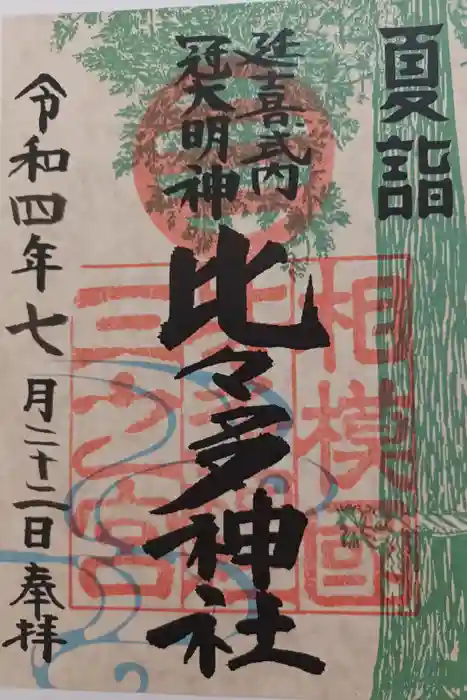 夏詣
延喜式内
冠大明神
比々多神社
相模国
三之宮
令和四年七月二十二日奉拝